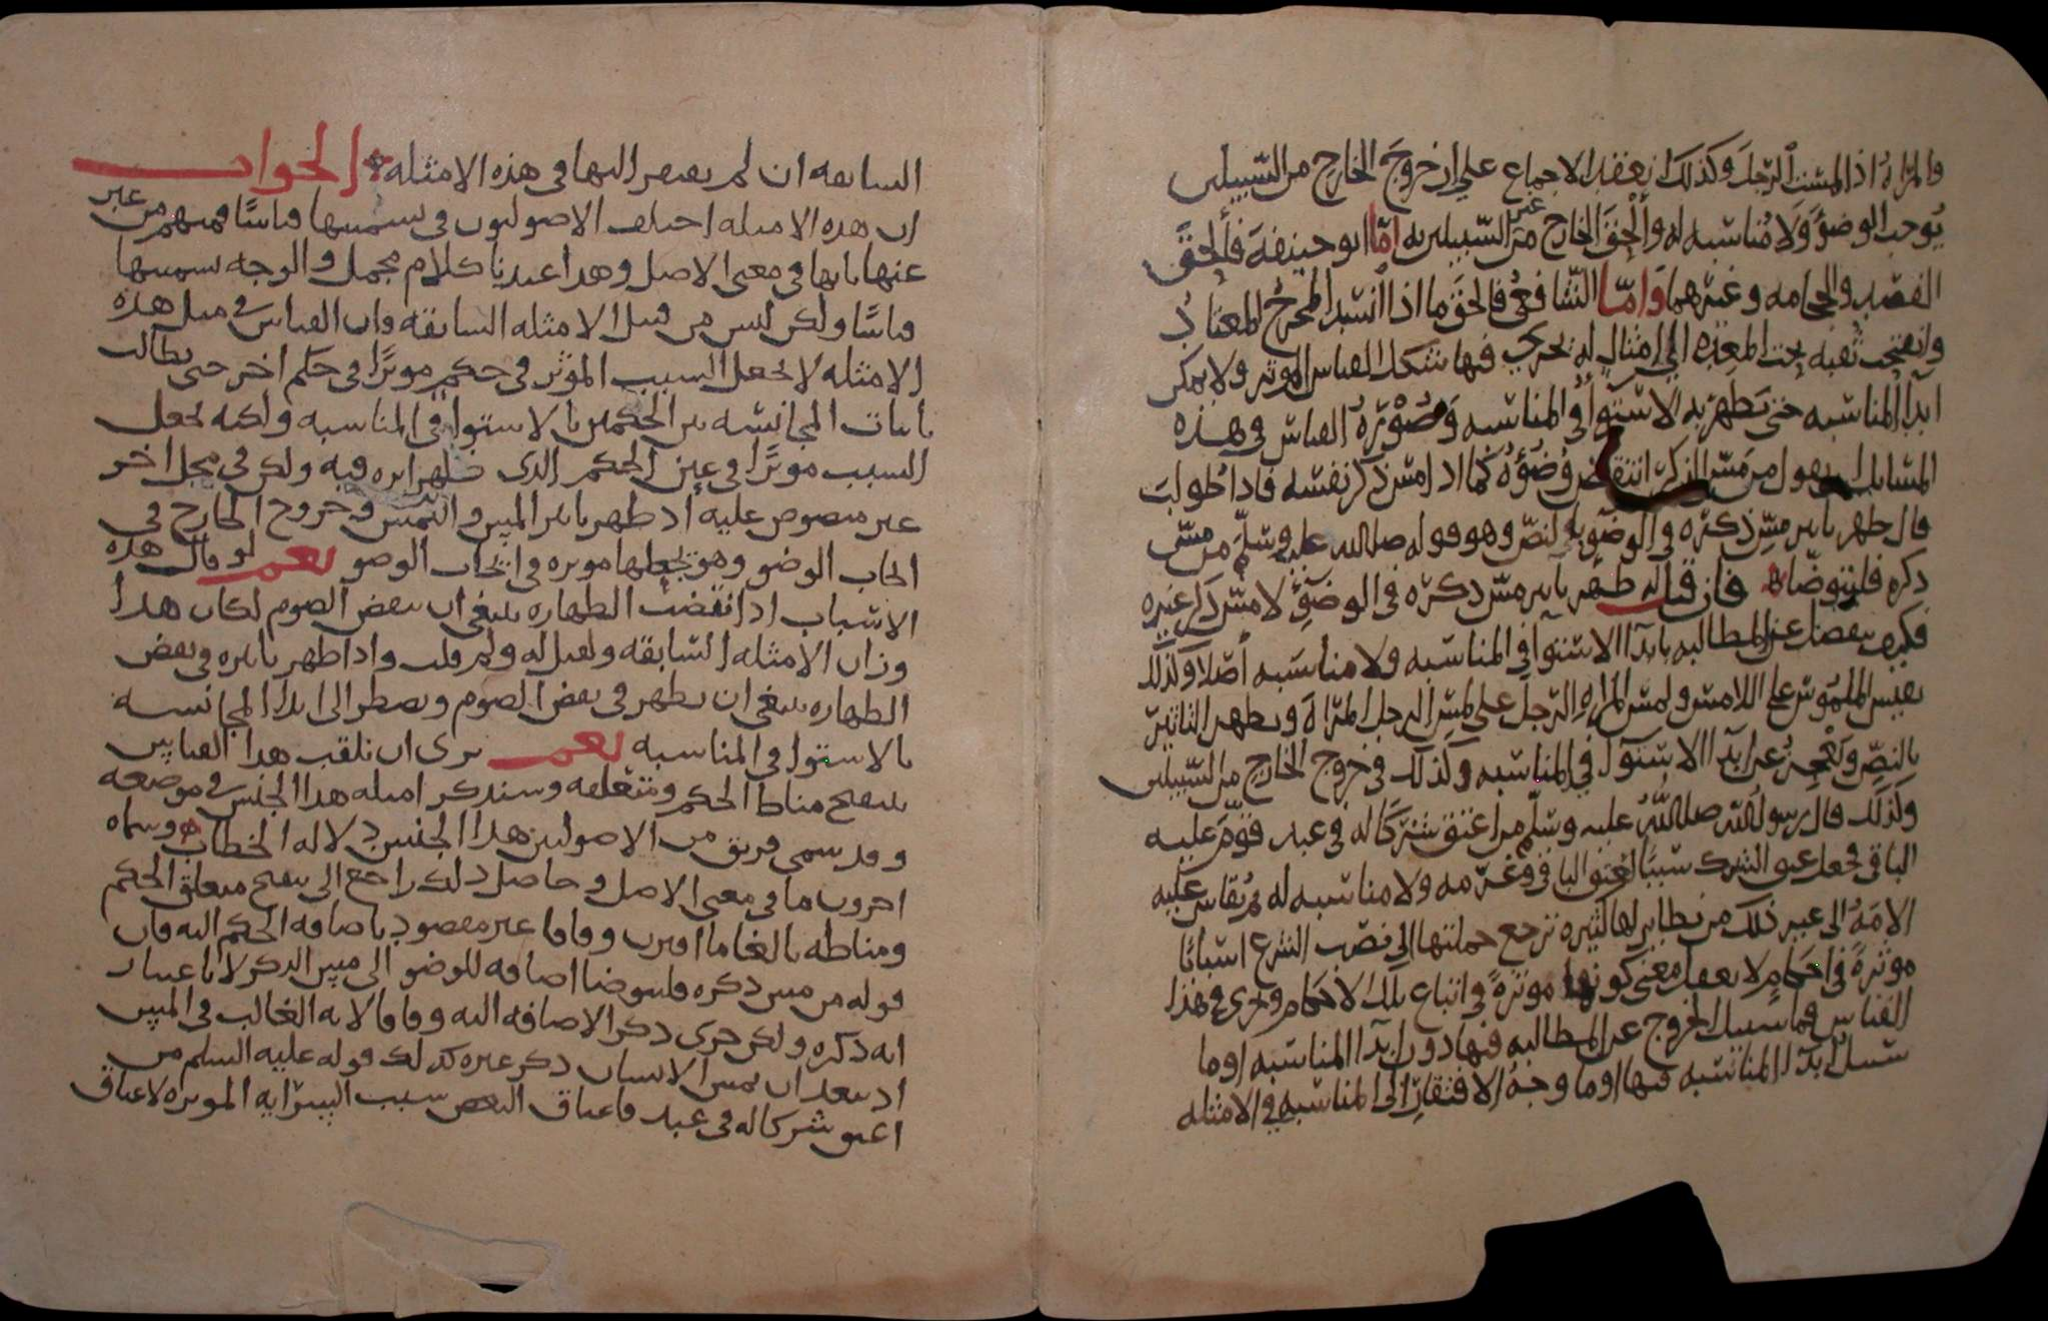 والمراة اذا لمست الرجل وكذلك انعقد الاجماع على ان خروج الخارج من السبيلين
يوجب الوضوء ولا مناسبة له وألحق الخارج من غير السبيلين به اما ابو حنيفة فألحق
الفصد والحجامه وغيرهما وأما الشافعي فالحق ما اذا انسد المخرج المعتاد
وانفتحت ثقبه تحت المعده الى امثال له تجري فيها شكل القياس المؤثر ولا يمكن
ابدا المناسبه حتى يظهر به الاستوا في المناسبه وصورة القياس في هذه
المسايل ان يقول من مس الذكر انتقض وضوؤه كما اذا مس ذكر نفسه فاذا طولب
قال ظهر تاثير مس ذكره في الوضوء بالنص وهو قوله صلى الله عليه وسلم من مس
ذكره فليتوضا فان قيل ظهر تاثير مس ذكره في الوضوء لا مس ذكر غيره
فكيف ينفصل عن المطالبه بابدا الاستوا في المناسبه ولا مناسبه أصلا وكذلك
يقيس الملموس على اللامس ولمس المراه الرجل على لمس الرجل المراة ويظهر التاثير
بالنص ويعجز عن ابدا الاستوا في المناسبه وكذلك في خروج الخارج من السبيلين
وكذلك قال رسول الله صلى الله عليه وسلم من اعتق شركا له في عبد قوم عليه
الباقي فجعل عتق الشرك سببا لعتق الباقي وغرمه ولا مناسبه له ثم يقاس عليه
الامة الى غير ذلك من نظاير لها كثيره ترجع جملتها الى نصب الشرع اسبابا
موثرة في احكام لا يعقل معنى كونها موثرة في اتباع تلك الاحكام وجرى في هذا
القياس فما سبيل الخروج عن المطالبه فيها دون ابدا المناسبه او ما
سبيل ابدا المناسبه فيها او ما وجه الافتقار الى المناسبه في الامثله
السابقه ان لم يفتقر اليها في هذه الامثله الجواب
ان هذه الامثله اختلف الاصوليون في تسميتها قياسا فمنهم من عبر
عنها بانها في معنى الاصل وهذا عندنا كلام مجمل والوجه تسميتها
قياسا ولكن ليس من قبيل الامثله السابقه فان القياس في مثل هذه
الامثله لا يجعل السبب المؤثر في حكم موثرا في حكم اخر حتى يطالب
باثبات المجانسه بين الحكمين بالاستوا في المناسبه ولكنه يجعل
السبب موثرا في عين الحكم الذي ظهر اثره فيه ولكن في محل اخر
غير منصوص عليه اذ ظهر تاثير المس واللمس وخروج الخارج في
ايجاب الوضو وهو يجعلها موثره في ايجاب الوضو نعم لو قال هذه
الاسباب اذا نقضت الطهاره ينبغي ان تنقض الصوم لكان هذا
وزان الامثله السابقه ولقيل له ولم قلت واذا ظهر تاثيره في نقض
الطهاره ينبغي ان يظهر في نقض الصوم ويضطر الى ابدا المجانسه
بالاستوا في المناسبه نعم نرى ان نلقب هذا القياس
بتنقيح مناط الحكم ومتعلقه وسنذكر امثله هذا الجنس في موضعه
وقد سمى فريق من الاصوليين هذا الجنس دلاله الخطاب وسماه
اخرون ما في معنى الاصل وحاصل ذلك راجع الى تنقيح متعلق الحكم
ومناطه بالغا ما اقترن وفاقا غير مقصود باضافه الحكم اليه فان
قوله من مس ذكره فليتوضا اضافه للوضو الى مس الذكر لا باعتبار
انه ذكره ولكن جرى ذكر الاضافه اليه وفاقا لانه الغالب في المس
اذ يبعد ان يمس الانسان ذكر غيره كذلك قوله عليه السلم من
اعتق شركا له في عبد فاعتاق البعض سبب السراية الموثره لاعتاق